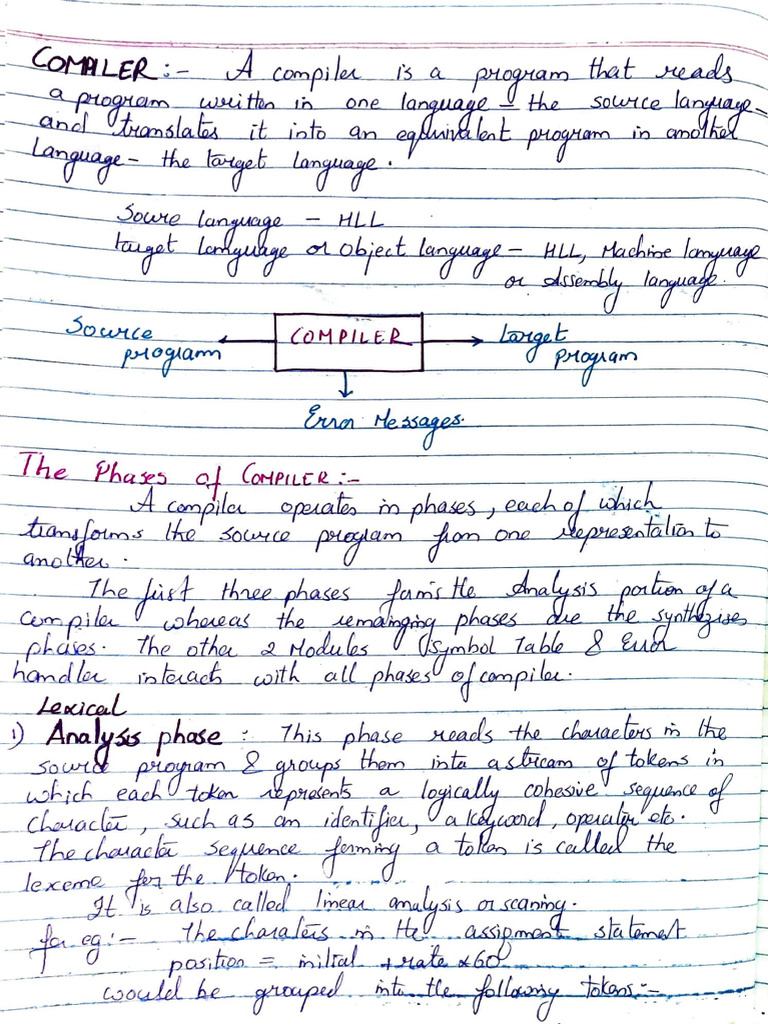 COMPILER :- A compiler is a program that reads
a program written in one language - the source language -
and translates it into an equivalent program in another
Language - the target language.
Soure language - HLL
target language or object language - HLL, Machine language
or Assembly language.
Source program
COMPILER
target program
Error Messages.
The Phases of COMPILER :-
A compiler operates in phases, each of which
transforms the source program from one representation to
another.
The first three phases forms the Analysis portion of a
compiler whereas the remainging phases are the synthezises
phases. The other 2 Modules (symbol Table & Error
handler interach with all phases of compiler.
Lexical
1) Analysis phase : This phase reads the characters in the
source program & groups them into a stream of tokens in
which each token represents a logically cohesive sequence of
character, such as an identifier, a keyword, operator etc.
The character sequence forming a token is called the
lexeme for the token.
It is also called linear analysis or scaning.
for eg :- The charaters in the assignment statement
position = initial + rate * 60
would be grouped into the following tokens :-